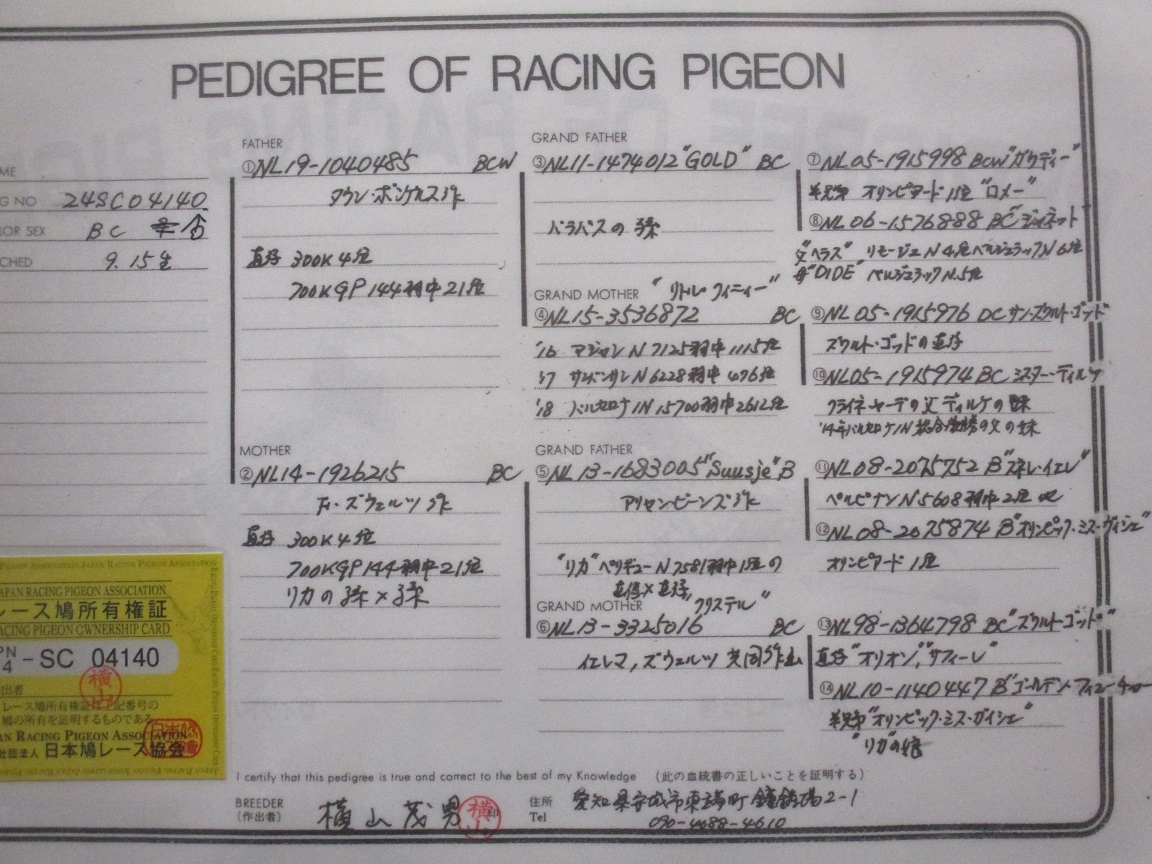 PEDIGREE OF RACING PIGEON
ME
G NO 24SC04140
LOR SEX BC ♂
CHED 9.15生
FATHER
①NL19-1040485 BCW
直仔 300K4位
700KGP144羽中21位
MOTHER
②NL14-1926215 BC
ズウェルツ作
直仔 300K4位
700KGP144羽中21位
リカの孫×孫
GRAND FATHER
③NL11-1474012"GOLD" BC
バラバスの孫
GRAND MOTHER "リトル・フィティー"
④NL15-3536872 BC
'16 マジャン N 7125羽中1115位
'17 サンバンサン N 6228羽中476位
'18 バルセロナIN 15700羽中2612位
GRAND FATHER
⑤NL13-1683005"Suusje"B
アリヤンビーンズ作
"リカ"ペリギューN7581羽中1位の
直仔×直仔
GRAND MOTHER "クリステル"
⑥NL13-3325016 BC
イエレマ,ズウェルツ共同作出
⑦NL05-1915998 BCW"ガウディー"
半兄弟 オリンピアード1位"ロメー"
⑧NL06-1576888 BC"ジャネット"
父"ヘラス" リモージュN4位ベルジュラックN6位
母"DIDE" ベルジュラックN.5位
⑨NL05-1915976 DCサン・ズワルト・ゴッド
ズワルト・ゴッドの直仔
⑩NL05-1915974 BCミスター・ディルク
クライネヤーデの父ディルクの妹
'14年バルセロナN総合優勝の父の妹
⑪NL08-2075752 B"スネレ・イエレ"
ペルピナンN5608羽中2位 他
⑫NL08-2075874 B"オリンピック・ミス・ガイシェ"
オリンピアード1位
⑬NL98-1364798 BC"ズワルト・ゴッド"
直仔"オリオン","サフィーレ"
⑭NL10-1140447 B"ゴールデン・フィニーチャー
半兄弟"オリンピック・ミス・ガイシェ"
"リカ"の娘
PIGEON ASSOCIATION JAPAN RACING PIGEON ASSOCIATION
APAN RACING PIGEON ASSOCIATION
レース鳩所有権証
ACING PIGEON OWNERSHIP CARD
PN
4 -SC 04140
出者
横山
レース鳩所有権証は上記番号の
鳩の所有を証明するものである
AN RACING PIGEON ASSOCIATION
社団法人 日本鳩レース協会
I certify that this pedigree is true and correct to the best of my Knowledge (此の血統書の正しいことを証明する)
BREEDER
(作出者) 横山茂男 印 横山
住所 愛知県安城市東端町鐘鋳場2-1
Tel 090-4088-4610